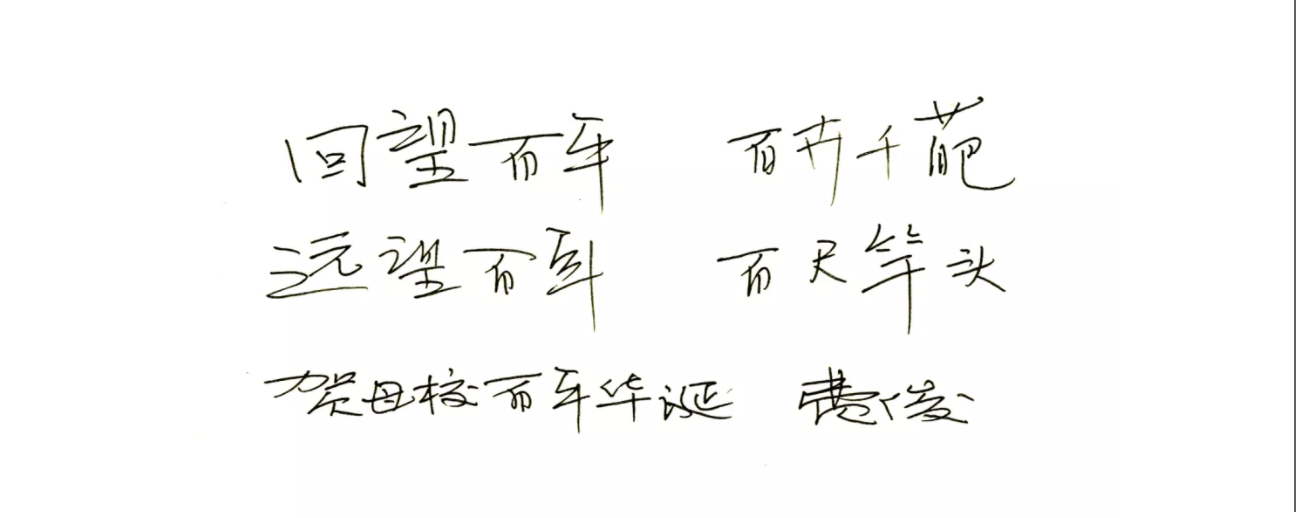 回望百年 百卉千葩
远望百年 百尺竿头
贺母校百年华诞 费俊